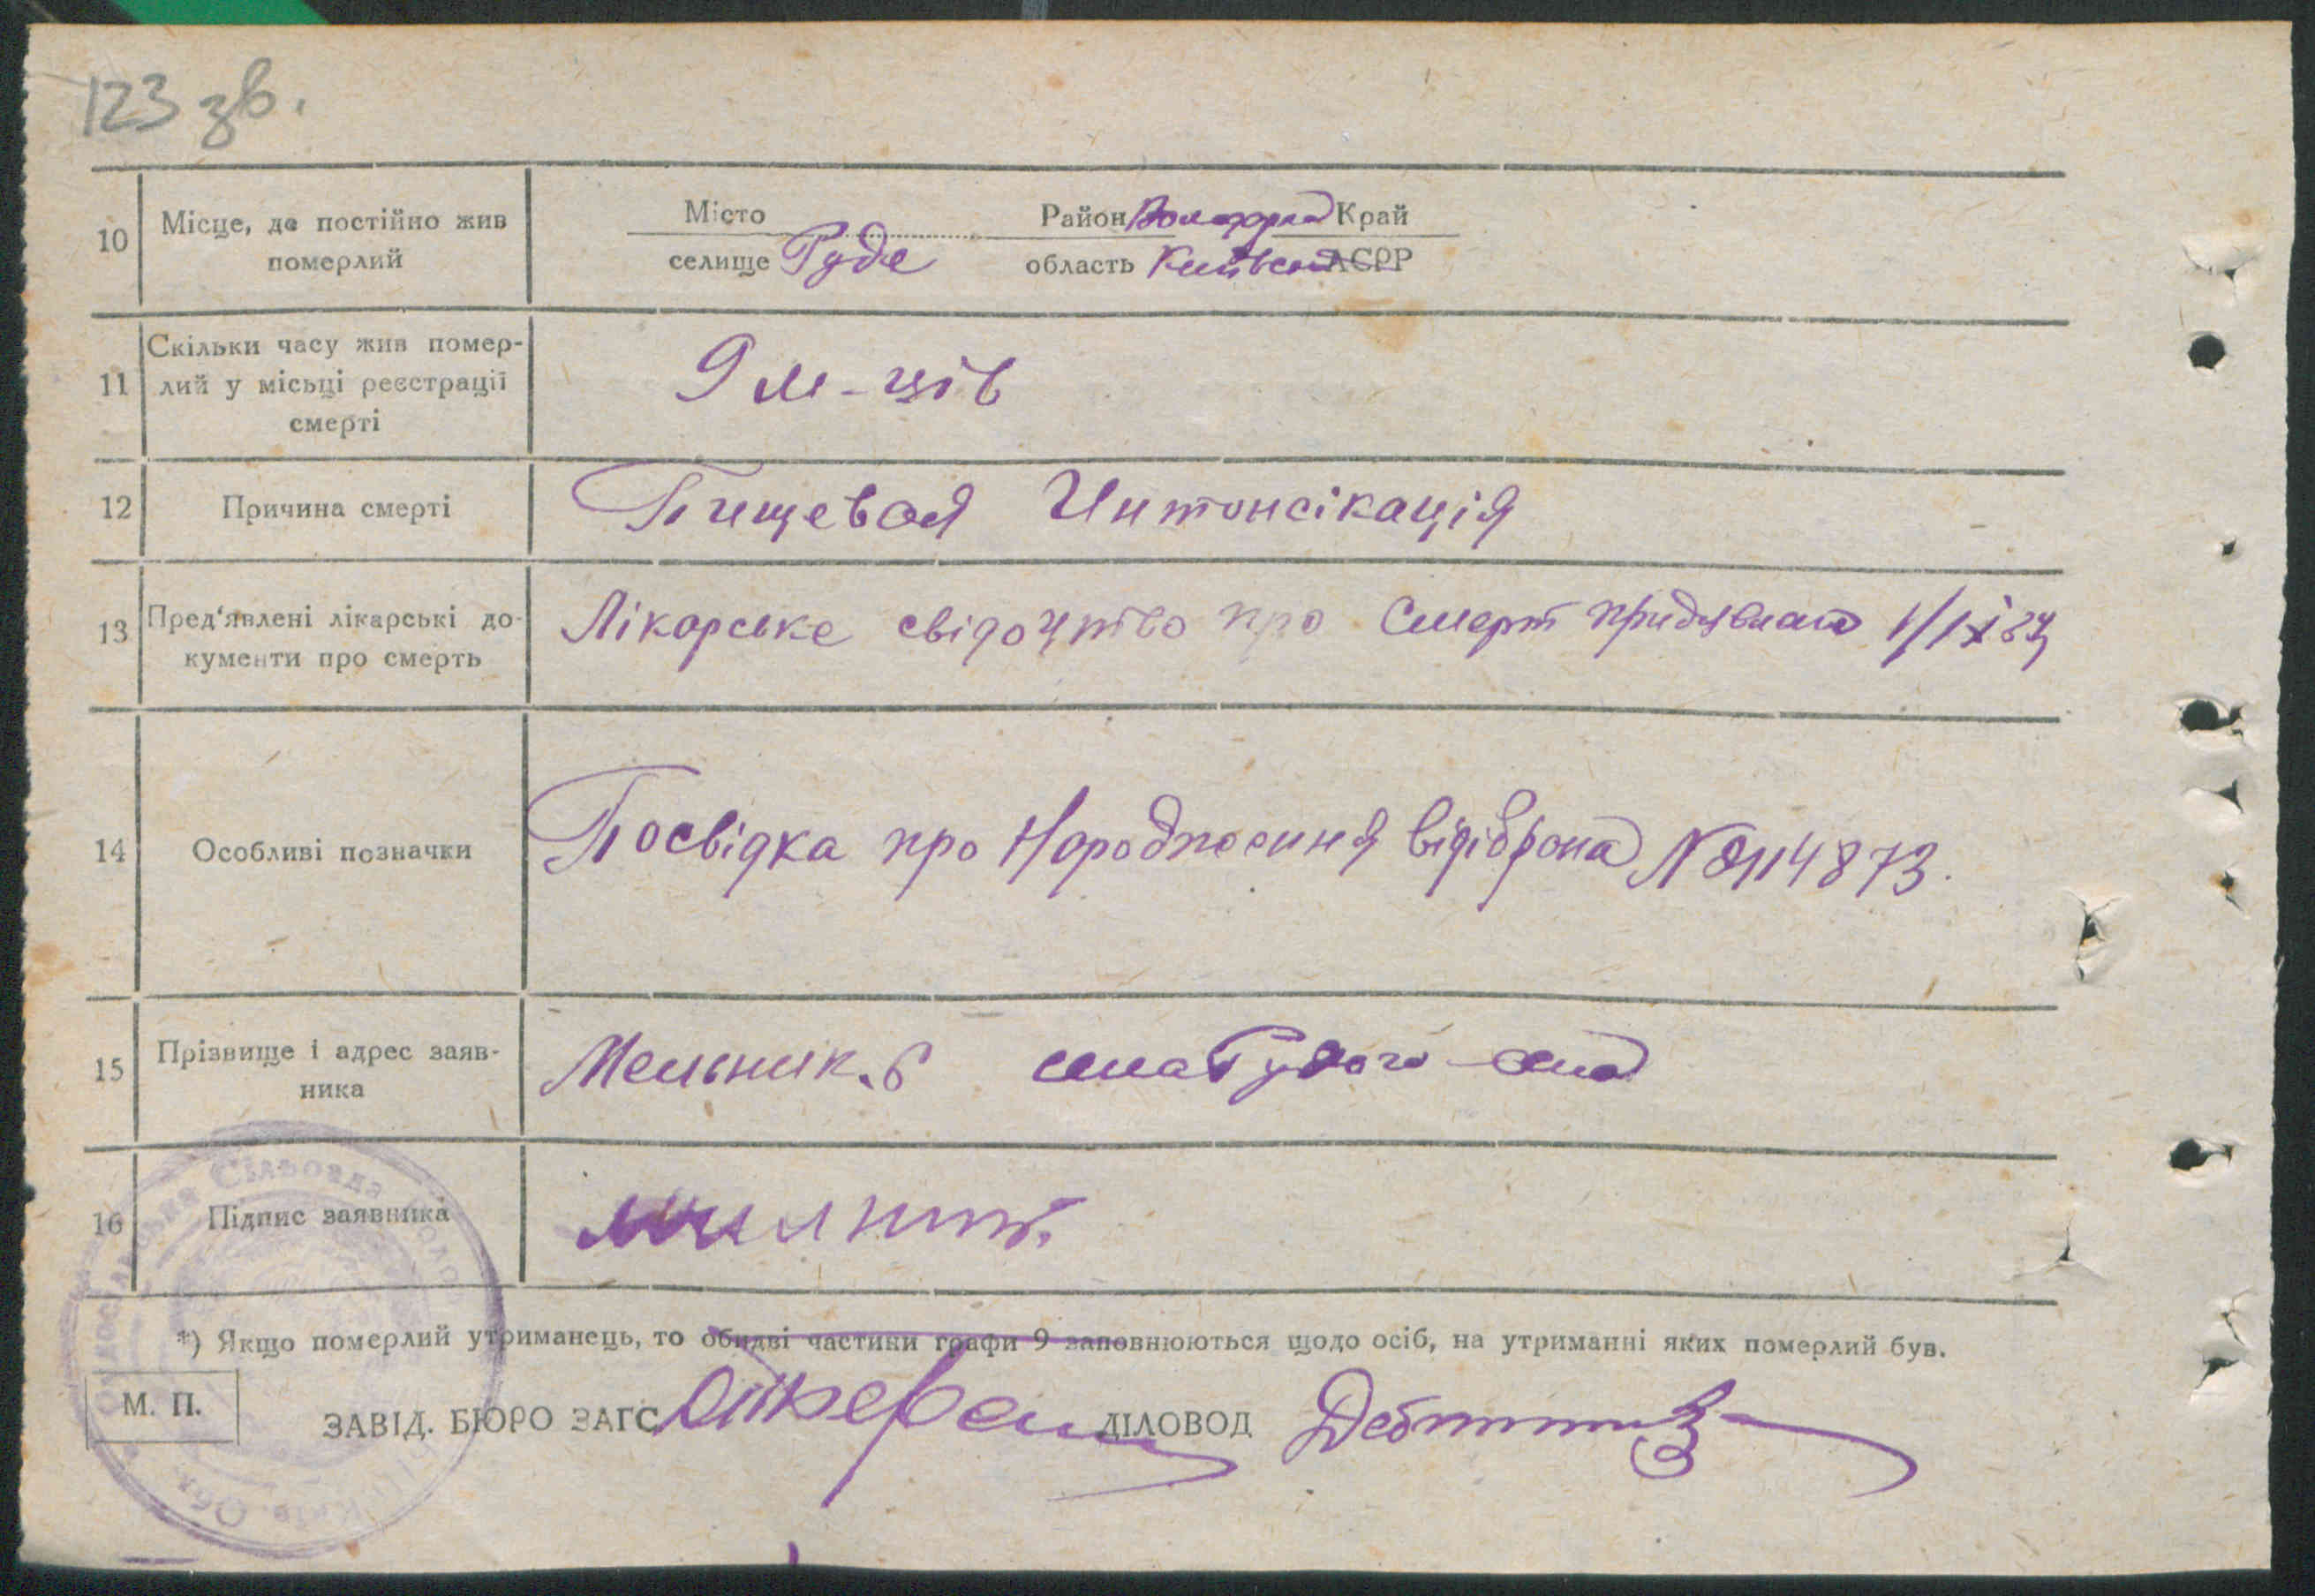 123 зв.
10
Місце, де постійно жив
померлий
Місто
селище Руде
Район Край
область Київська АСРР
11
Скільки часу жив помер-
лий у місьці реєстрації
смерті
9 м-ців
12
Причина смерті
Пищевая Интонсікація
13
Пред'явлені лікарські до-
кументи про смерть
Лікарське свідоцтво про Смерт
14
Особливі позначки
Посвідка про Народження відібрана N
15
Прізвище і адрес заяв-
ника
Мельник.
села Рудого села
16
Підпис заявника
*) Якщо померлий утриманець, то обидві частини графи 9 заповнюються щодо осіб, на утриманні яких померлий був.
М. П.
ЗАВІД. БЮРО ЗАГС
ДІЛОВОД